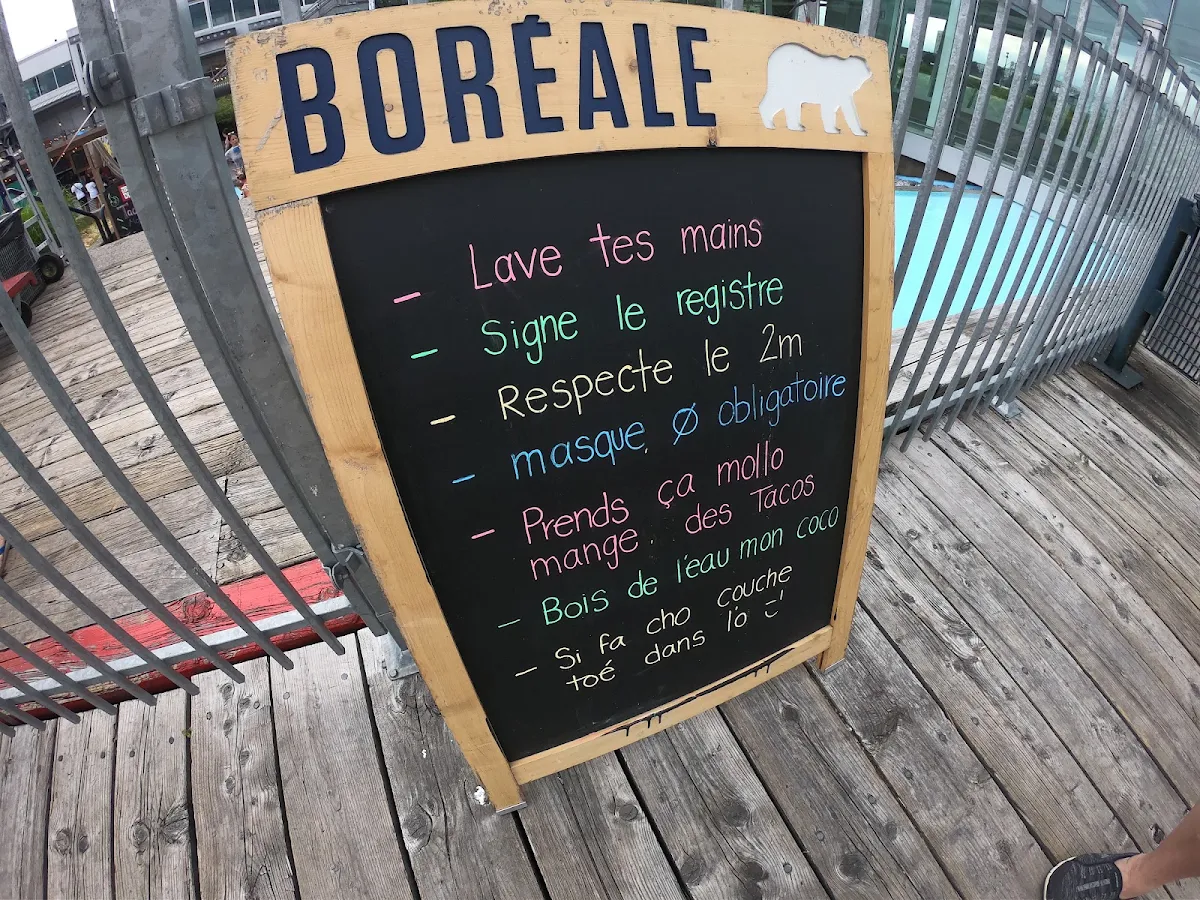 BORÉALE
- Lave tes mains
- Signe le registre
- Respecte le 2m
- masque Ø obligatoire
- Prends ça mollo
mange des Tacos
- Bois de l'eau mon coco
- Si fa cho couche
toé dans l'ô